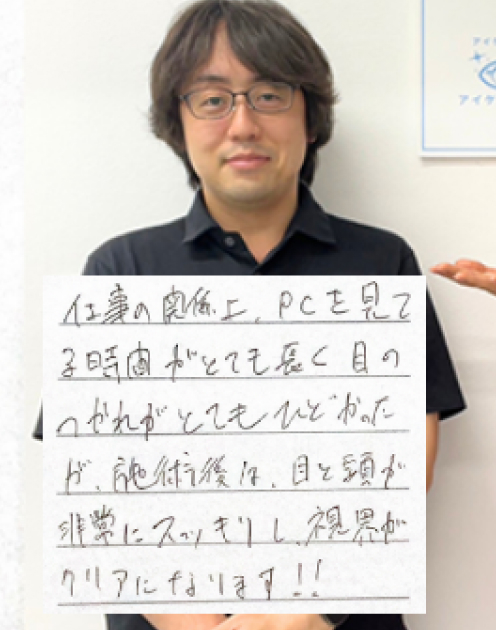 アイケ
アイケ
仕事の関係上、PCを見て
る時間がとても長く目の
つかれがとてもひどかった
が、施術後は、目と頭が
非常にスッキリし、視界が
クリアになります!!